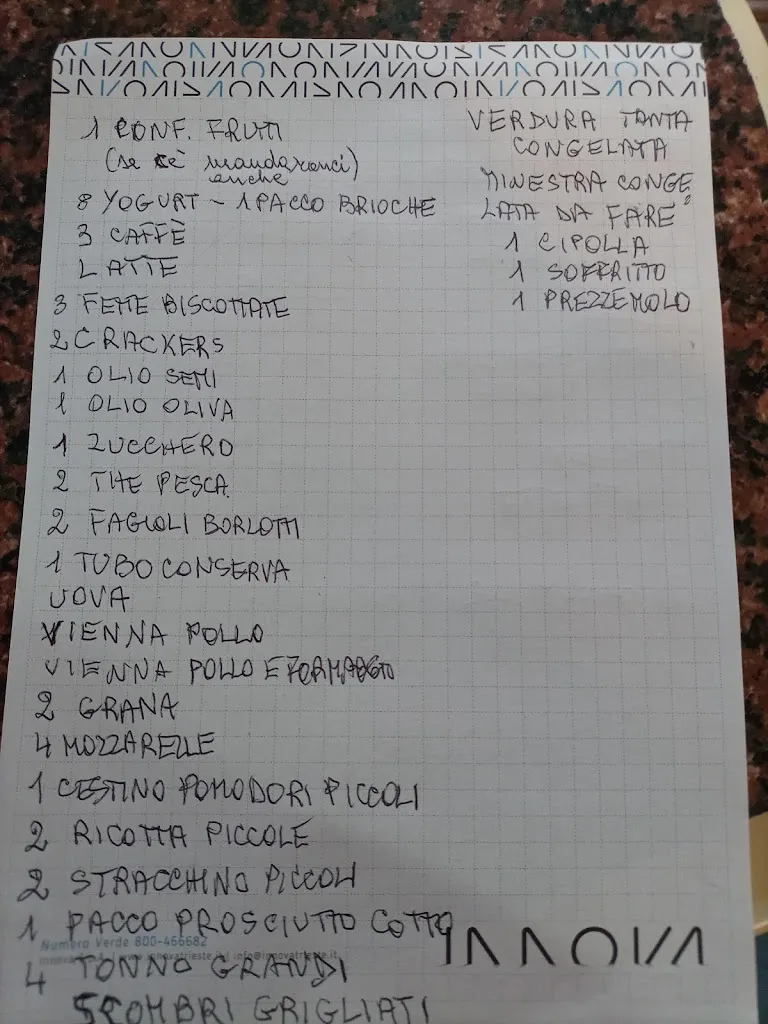 1 CONF. FRUTTI
(se c'è mandaranci)
anche
8 YOGURT - 1 PACCO BRIOCHE
3 CAFFÈ
LATTE
3 FETTE BISCOTTATE
2 CRACKERS
1 OLIO SEMI
1 OLIO OLIVA
1 ZUCCHERO
2 THE PESCA
2 FAGIOLI BORLOTTI
1 TUBO CONSERVA
UOVA
VIENNA POLLO
VIENNA POLLO E FORMAGGIO
2 GRANA
4 MOZZARELLE
1 CESTINO POMODORI PICCOLI
2 RICOTTA PICCOLE
2 STRACCHINO PICCOLI
1 PACCO PROSCIUTTO COTTO
Numero Verde 800-466682
www.innovatrieste.it | info@innovatrieste.it
INNOVA
4 TONNO GRANDI
SCOMBRI GRIGLIATI
VERDURA TANTA
CONGELATA
MINESTRA CONGE
LATA DA FARE
1 CIPOLLA
1 SOFFRITTO
1 PREZZEMOLO